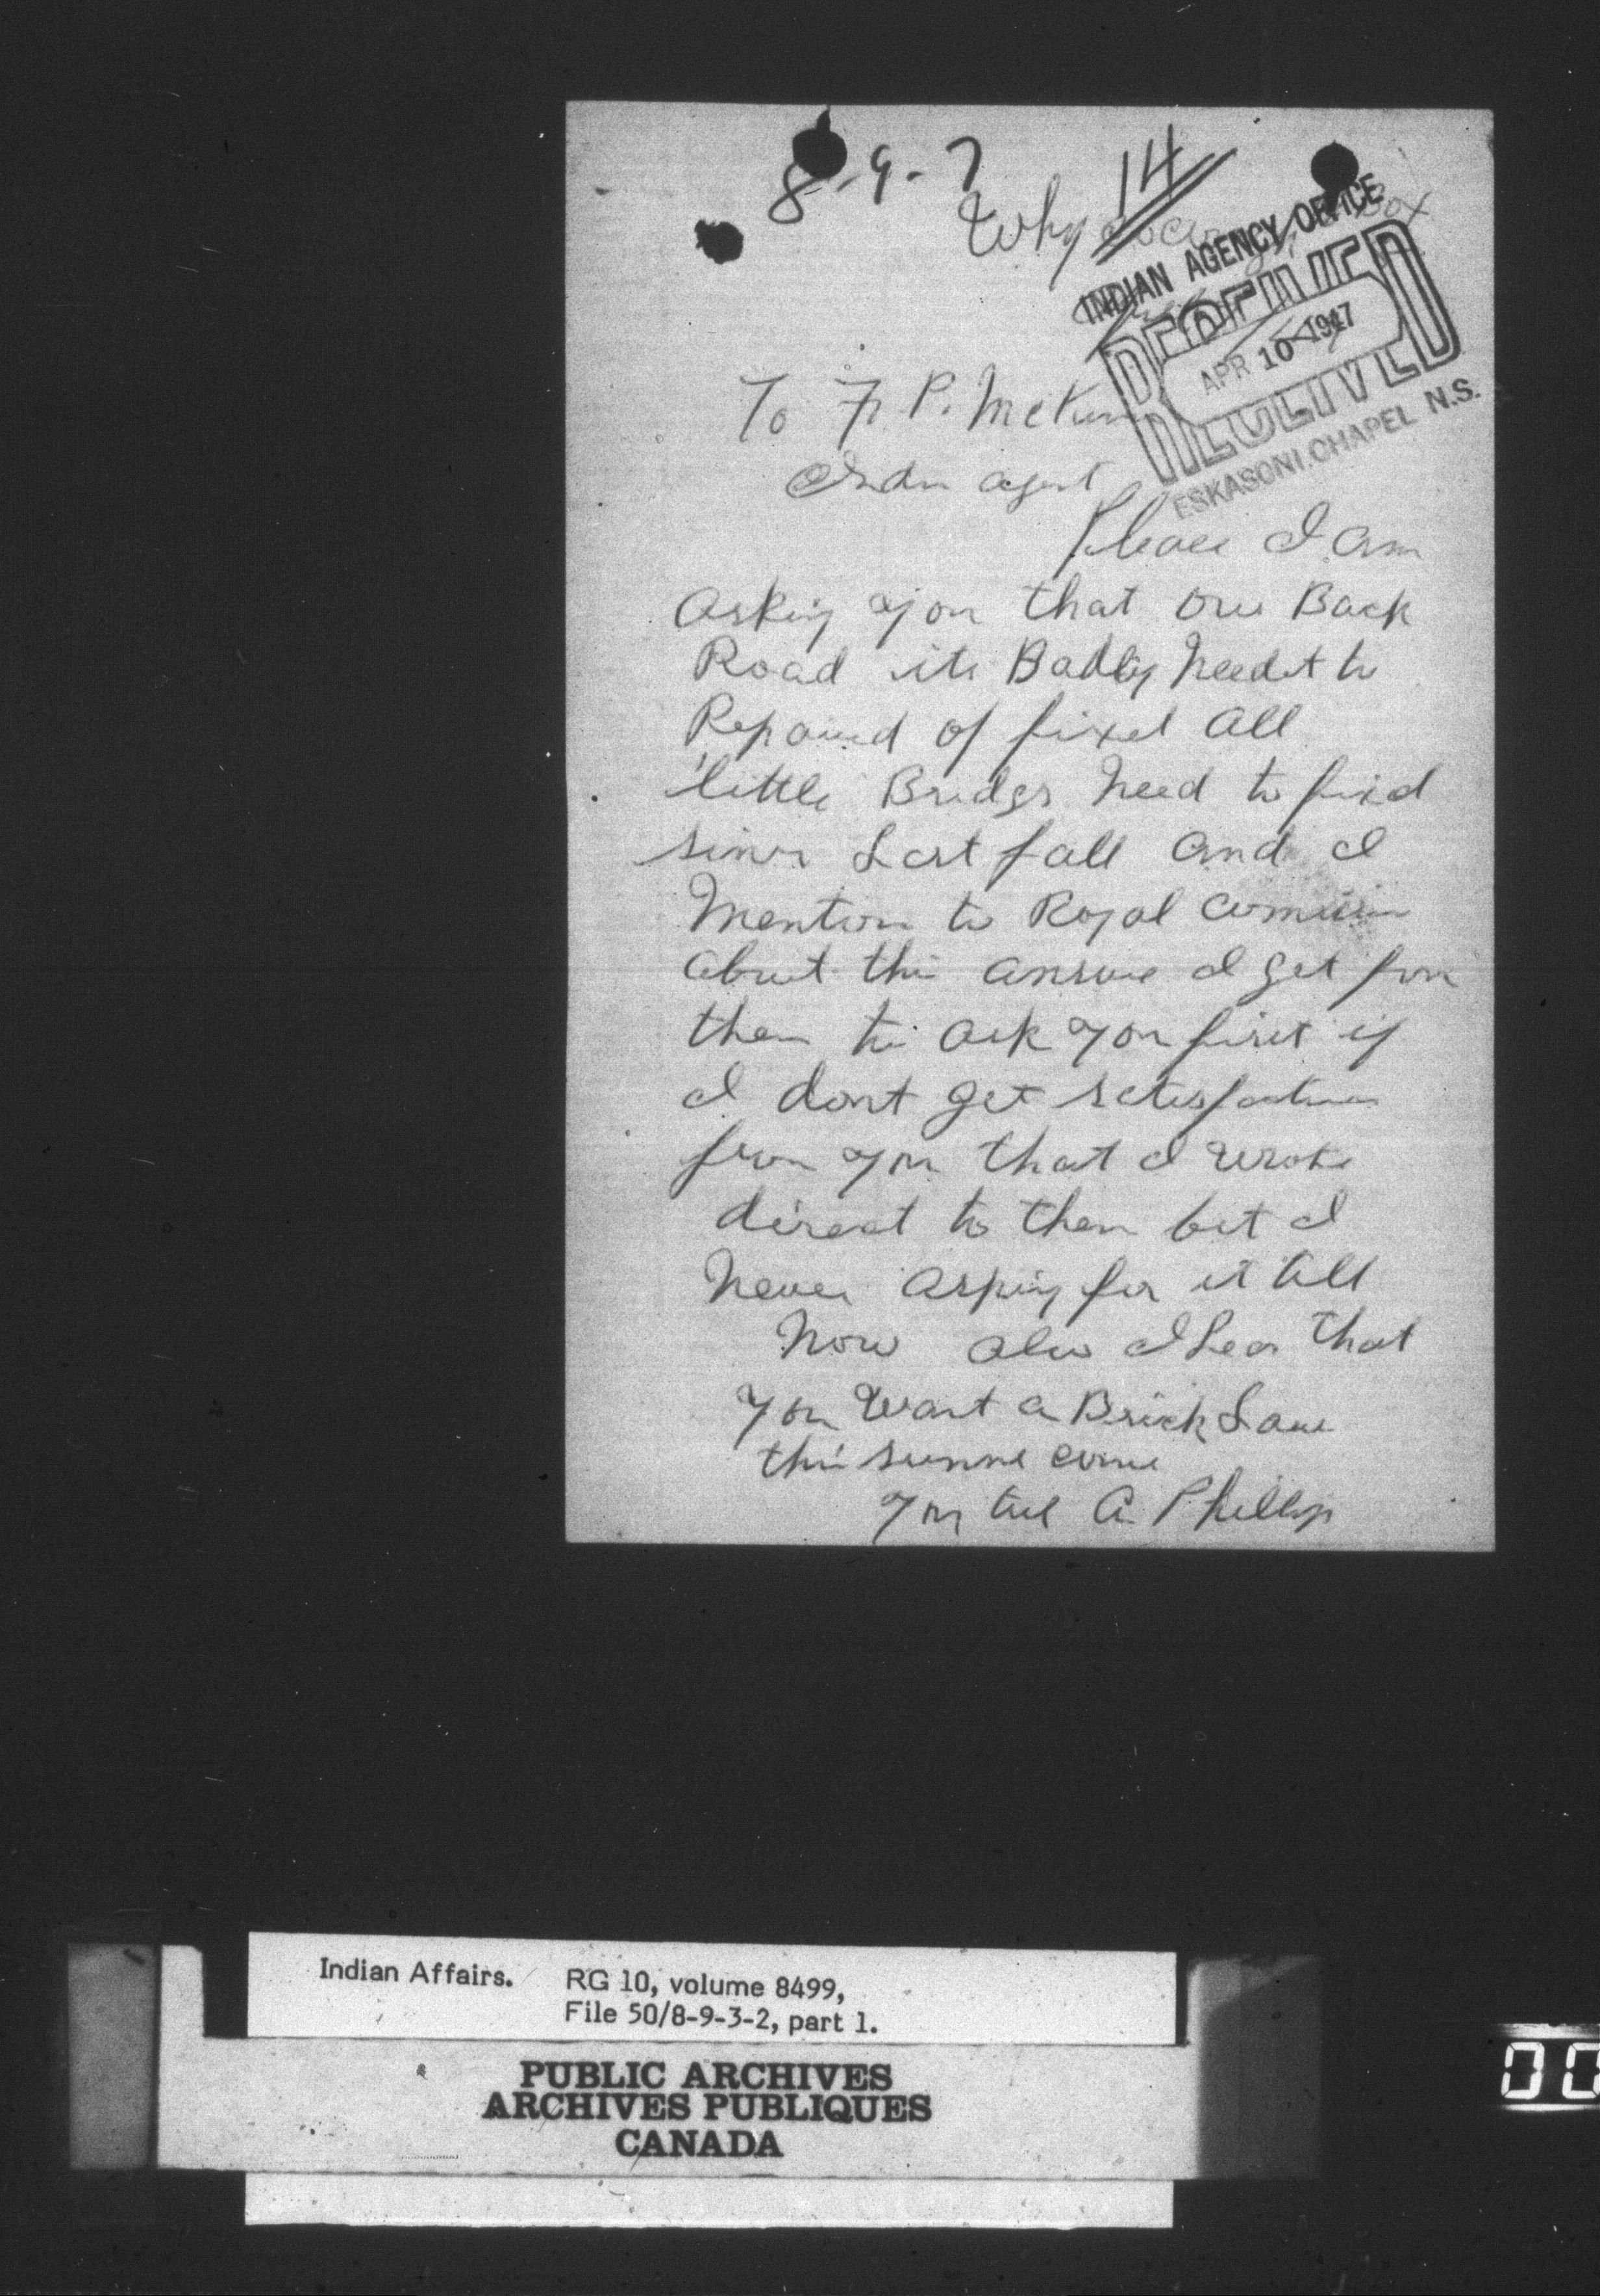 8-9-7
14
Why
INDIAN AGENCY OFFICE
RECEIVED
APR 10 1947
ESKASONI, CHAPEL N.S.
To F. P. McKin
Indn agent
Please I am
asking you that our Back
Road its Badly needet to
Repaired of fixed all
little Bridges need to fixed
since Last fall and I
mention to Royal
about this answe I get from
them to ask you first if
I dont get satisfaction
from you that I wrote
direct to them but I
never asking for it till
now also I hear that
you want a Brick
this summe
A. Phillip
Indian Affairs. RG 10, volume 8499,
File 50/8-9-3-2, part 1.
PUBLIC ARCHIVES
ARCHIVES PUBLIQUES
CANADA
00